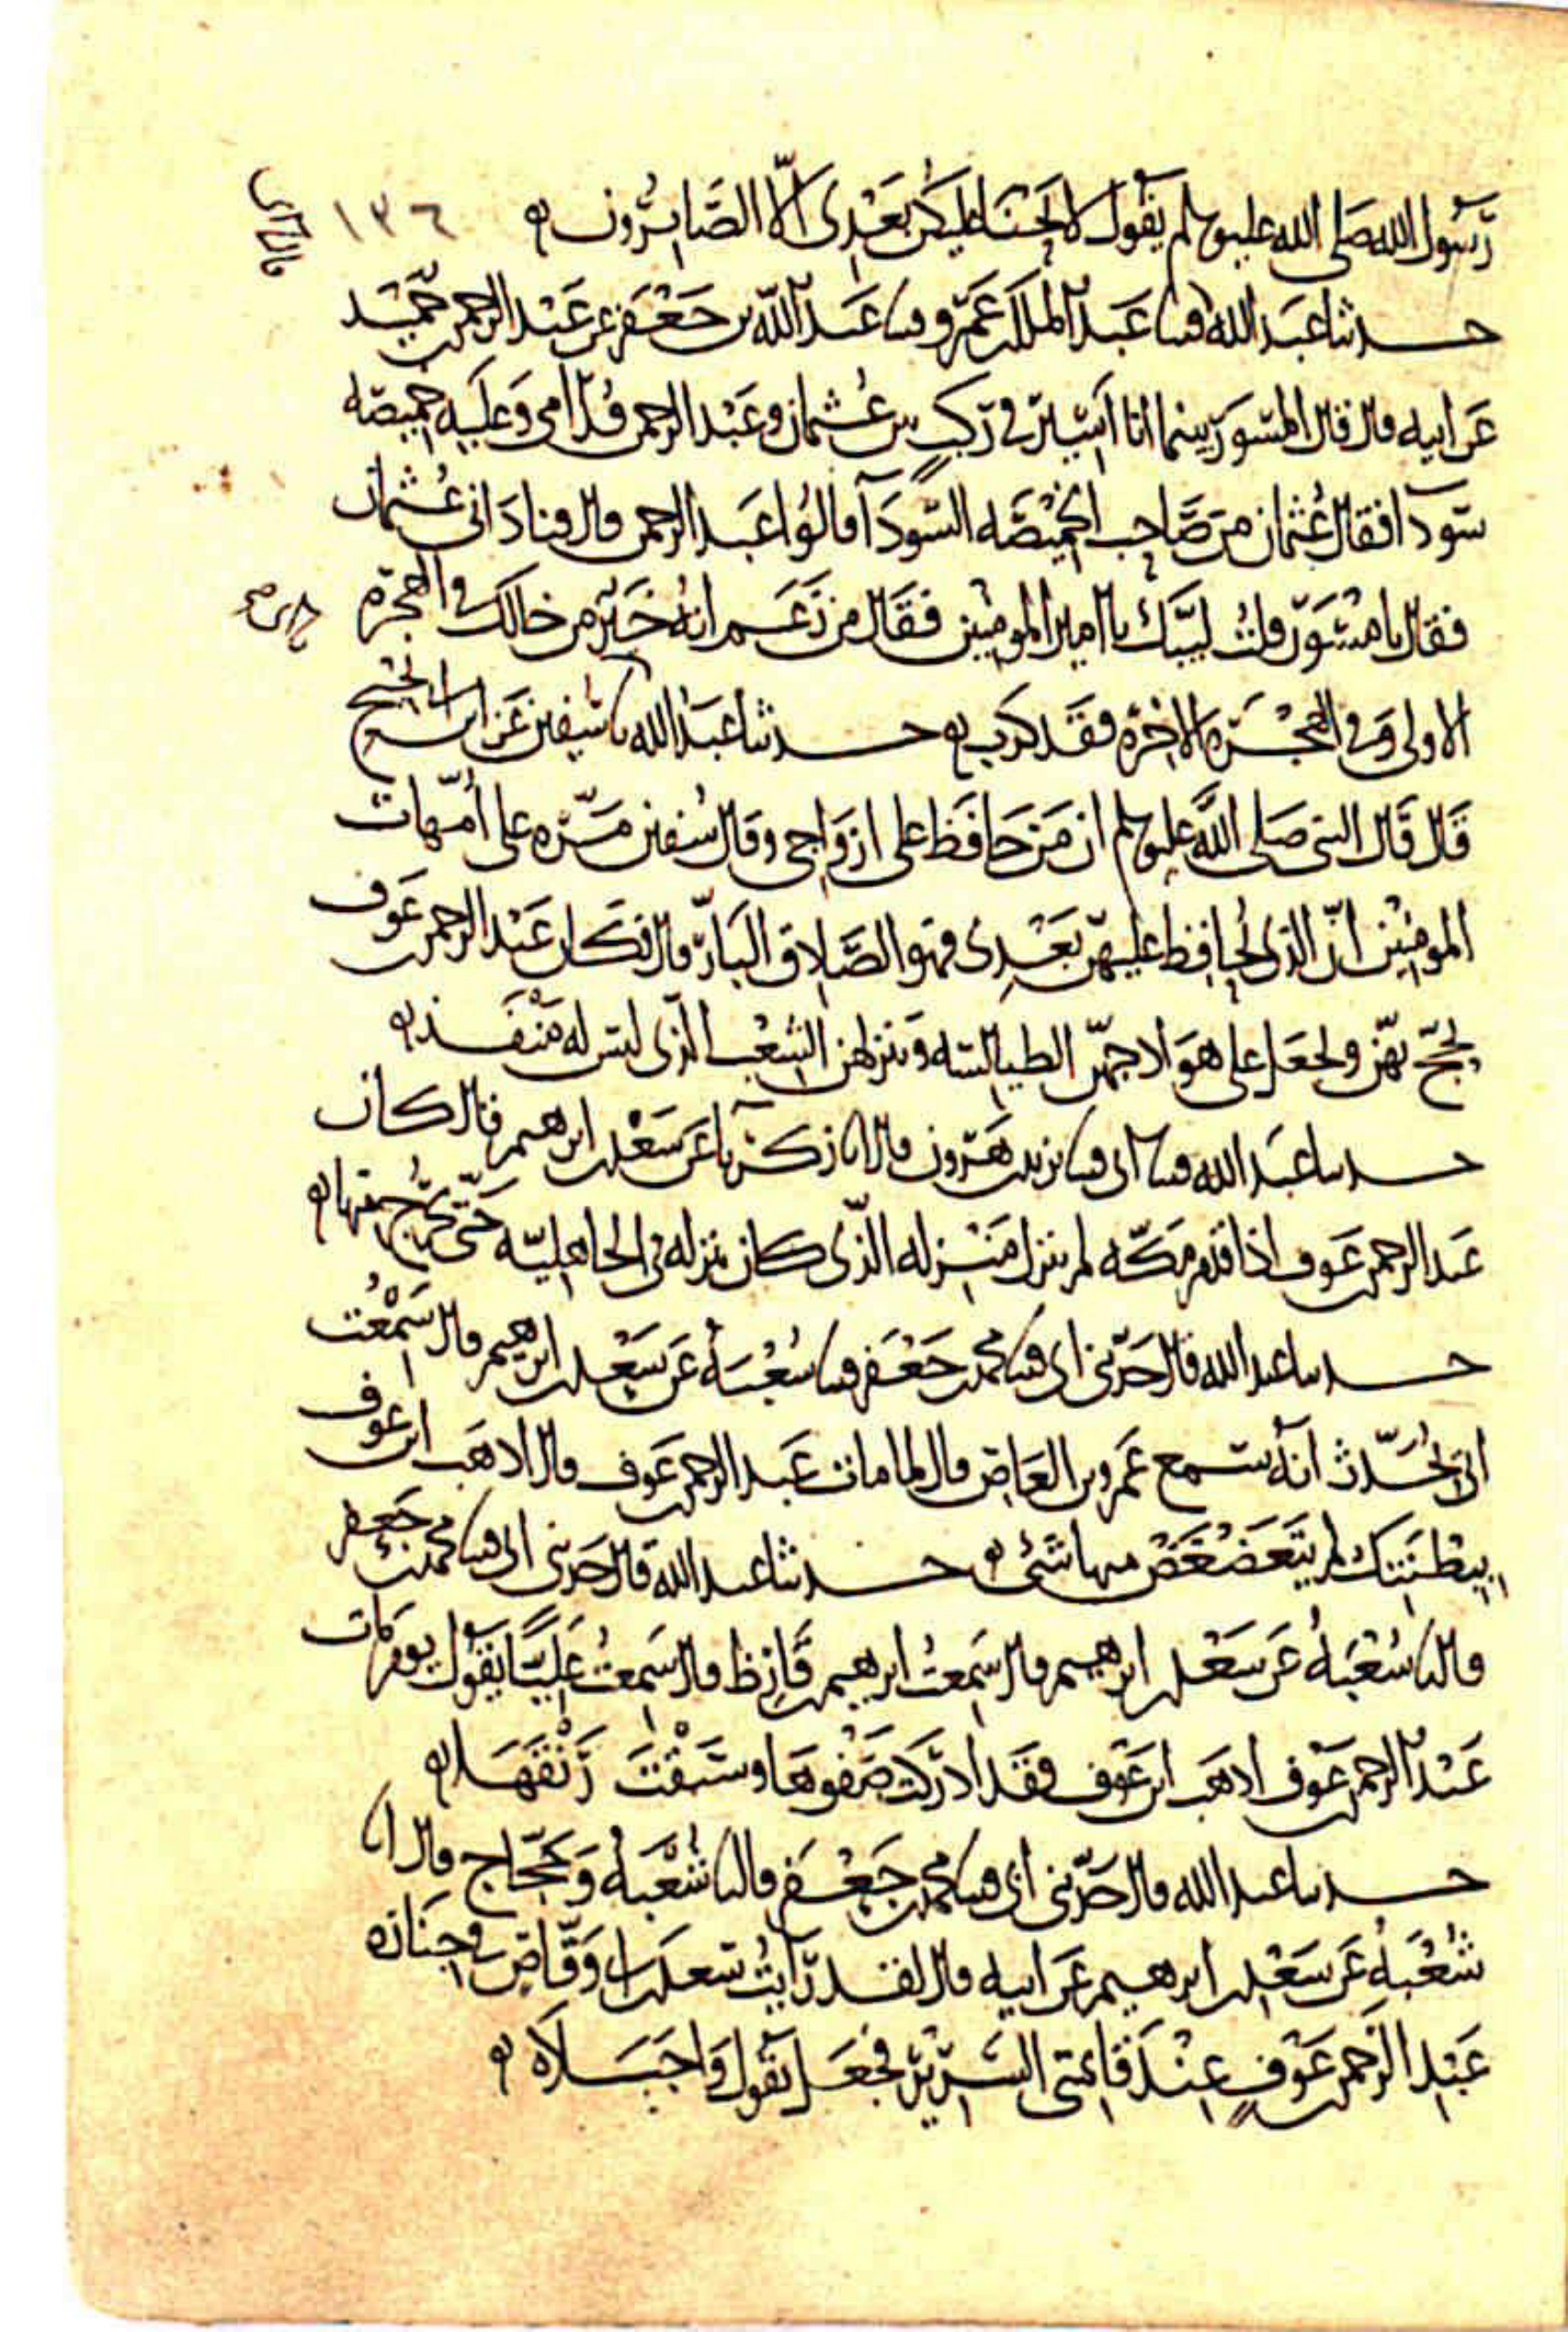 رسول الله صلى الله عليه وسلم يقول لا يحنا عليكن بعدي الا الصابرون ١٣٦
حدثنا عبد الله قثنا عبد الملك بن عمرو قثنا عبد الله بن جعفر عن عبد الرحمن بن حميد
عن ابيه قال قال المسور بينما انا اسير في ركب بين عثمان وعبد الرحمن قدامي وعليه خميصه
سودا فقال عثمان من صاحب الخميصه السودآ قالوا عبد الرحمن قال فناداني عثمان
فقال يا مسور قلت لبيك يا امير المومنين فقال من زعم انه خير من خالك في الهجره
الاولى وفي الهجره الاخره فقد كذب حدثنا عبد الله نا سفين عن ابن ابي نجيح
قال قال النبي صلى الله عليه وسلم ان من حافظ على ازواجي وقال سفين مره على امهات
المومنين ان الذي يحافظ عليهن بعدي فهو الصادق البار قال فكان عبد الرحمن بن عوف
يحج بهن ويجعل على هوادجهن الطيالسه وينزلهن الشعب الذي ليس له منفذ
حدثنا عبد الله قثنا ابي قثنا يزيد بن هرون قال انا زكريا عن سعد بن ابرهيم قال كان
عبد الرحمن بن عوف اذا قدم مكه لم ينزل منزله الذي كان ينزله في الجاهليه حتى يخرج منها
حدثنا عبد الله قال حدثني ابي قثنا محمد بن جعفر قثنا شعبه عن سعد بن ابرهيم قال سمعت
ابي يحدث انه سمع عمرو بن العاص قال لما مات عبد الرحمن بن عوف قال اذهب ابن عوف
ببطنتك لم يتغضغض منها شئ حدثنا عبد الله قال حدثني ابي قثنا محمد بن جعفر
قال نا شعبه عن سعد بن ابرهيم قال سمعت ابرهيم بن قارظ قال سمعت عليا يقول يوم مات
عبد الرحمن بن عوف اذهب ابن عوف فقد ادركت صفوها وسبقت رنقها
حدثنا عبد الله قال حدثني ابي قثنا محمد بن جعفر قال نا شعبه وحجاج قال انا
شعبه عن سعد بن ابرهيم عن ابيه قال لقد رايت سعد بن ابي وقاص في جنازه
عبد الرحمن بن عوف عند قائمتي السرير فجعل يقول واجبلاه